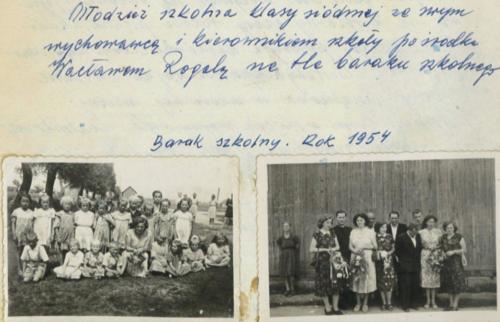 Młodzież szkolna klasy siódmej ze swym
wychowawcą i kierownikiem szkoły pośrodku
Wacławem Rogalą na tle baraku szkolnego
Barak szkolny. Rok 1954